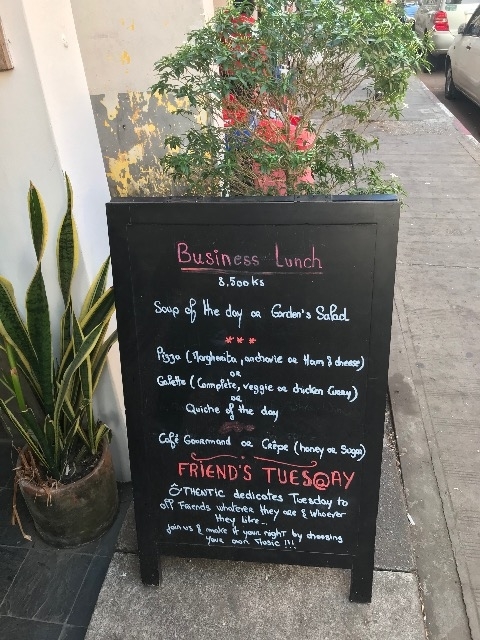 Business Lunch
8,500 ks
Soup of the day or Garden's Salad
***
Pizza (Margherita, anchovie or Ham & cheese)
or
Galette (Complète, veggie or chicken Curry)
or
Quiche of the day
Café Gourmand or Crêpe (honey or Sugar)
FRIEND'S TUES@AY
ÔTHENTIC dedicates Tuesday to
all Friends whatever they are & whoever
they like...
Join us & make it your night by choosing
your own Music !!!